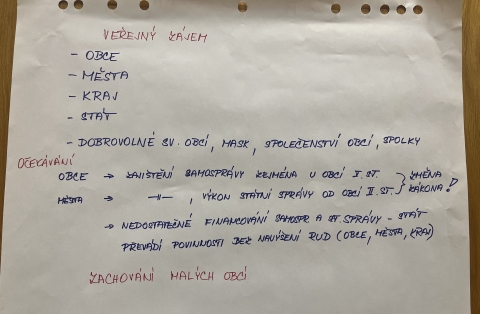 VEŘEJNÝ ZÁJEM
- OBCE
- MĚSTA
- KRAJ
- STÁT
- DOBROVOLNÉ SV. OBCÍ, MASK, SPOLEČENSTVÍ OBCÍ, SPOLKY
OČEKÁVÁNÍ
OBCE → ZAJIŠTĚNÍ SAMOSPRÁVY ZEJMÉNA U OBCÍ I. ST. } ZMĚNA
MĚSTA → —||— , VÝKON STÁTNÍ SPRÁVY OD OBCÍ II. ST. } ZÁKONA!
→ NEDOSTATEČNÉ FINANCOVÁNÍ SAMOSPR A ST. SPRÁVY - STÁT
PŘEVÁDÍ POVINNOSTI BEZ NAVÝŠENÍ RUD (OBCE, MĚSTA, KRAJ)
ZACHOVÁNÍ MALÝCH OBCÍ